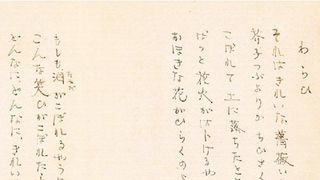 わらひ
それはきれいな薔薇い
芥子つぶよりかちひさく
こぼれて土に落ちたと
ぱっと花火がはじけるや
おほきな花がひらくのよ
もしも泪がこぼれるやう
こんな笑ひがこぼれたら
どんなに、どんなに、きれい